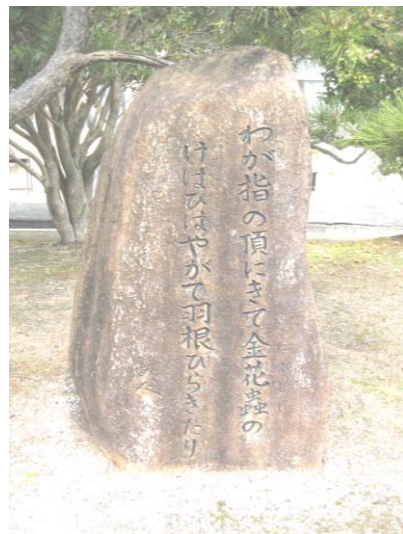 わが指の頂にきて金花蟲の
けはひはやがて羽根ひらきたり